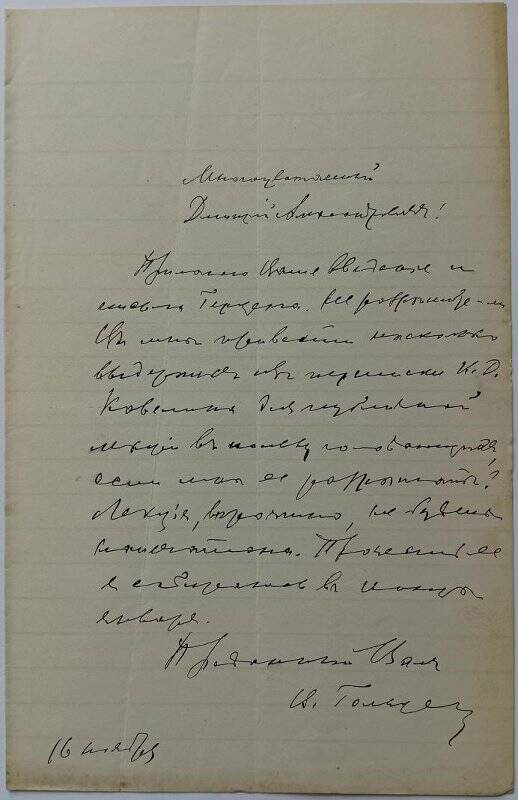 Многоуважаемый
Дмитрий Александрович!
Прилагаю Ваше введение и
письма Герцена. Не разрешите ли
Вы мне привести несколько
выдержек изъ переписки К. Д.
Кавелина для публичной
лекціи въ пользу голодающихъ,
если мне ее разрешатъ?
Лекція, вероятно, не будетъ
напечатана. Прочесть ее
я собираюсь въ конце
января.
Преданный Вамъ
В. Гольцев
16 ноября